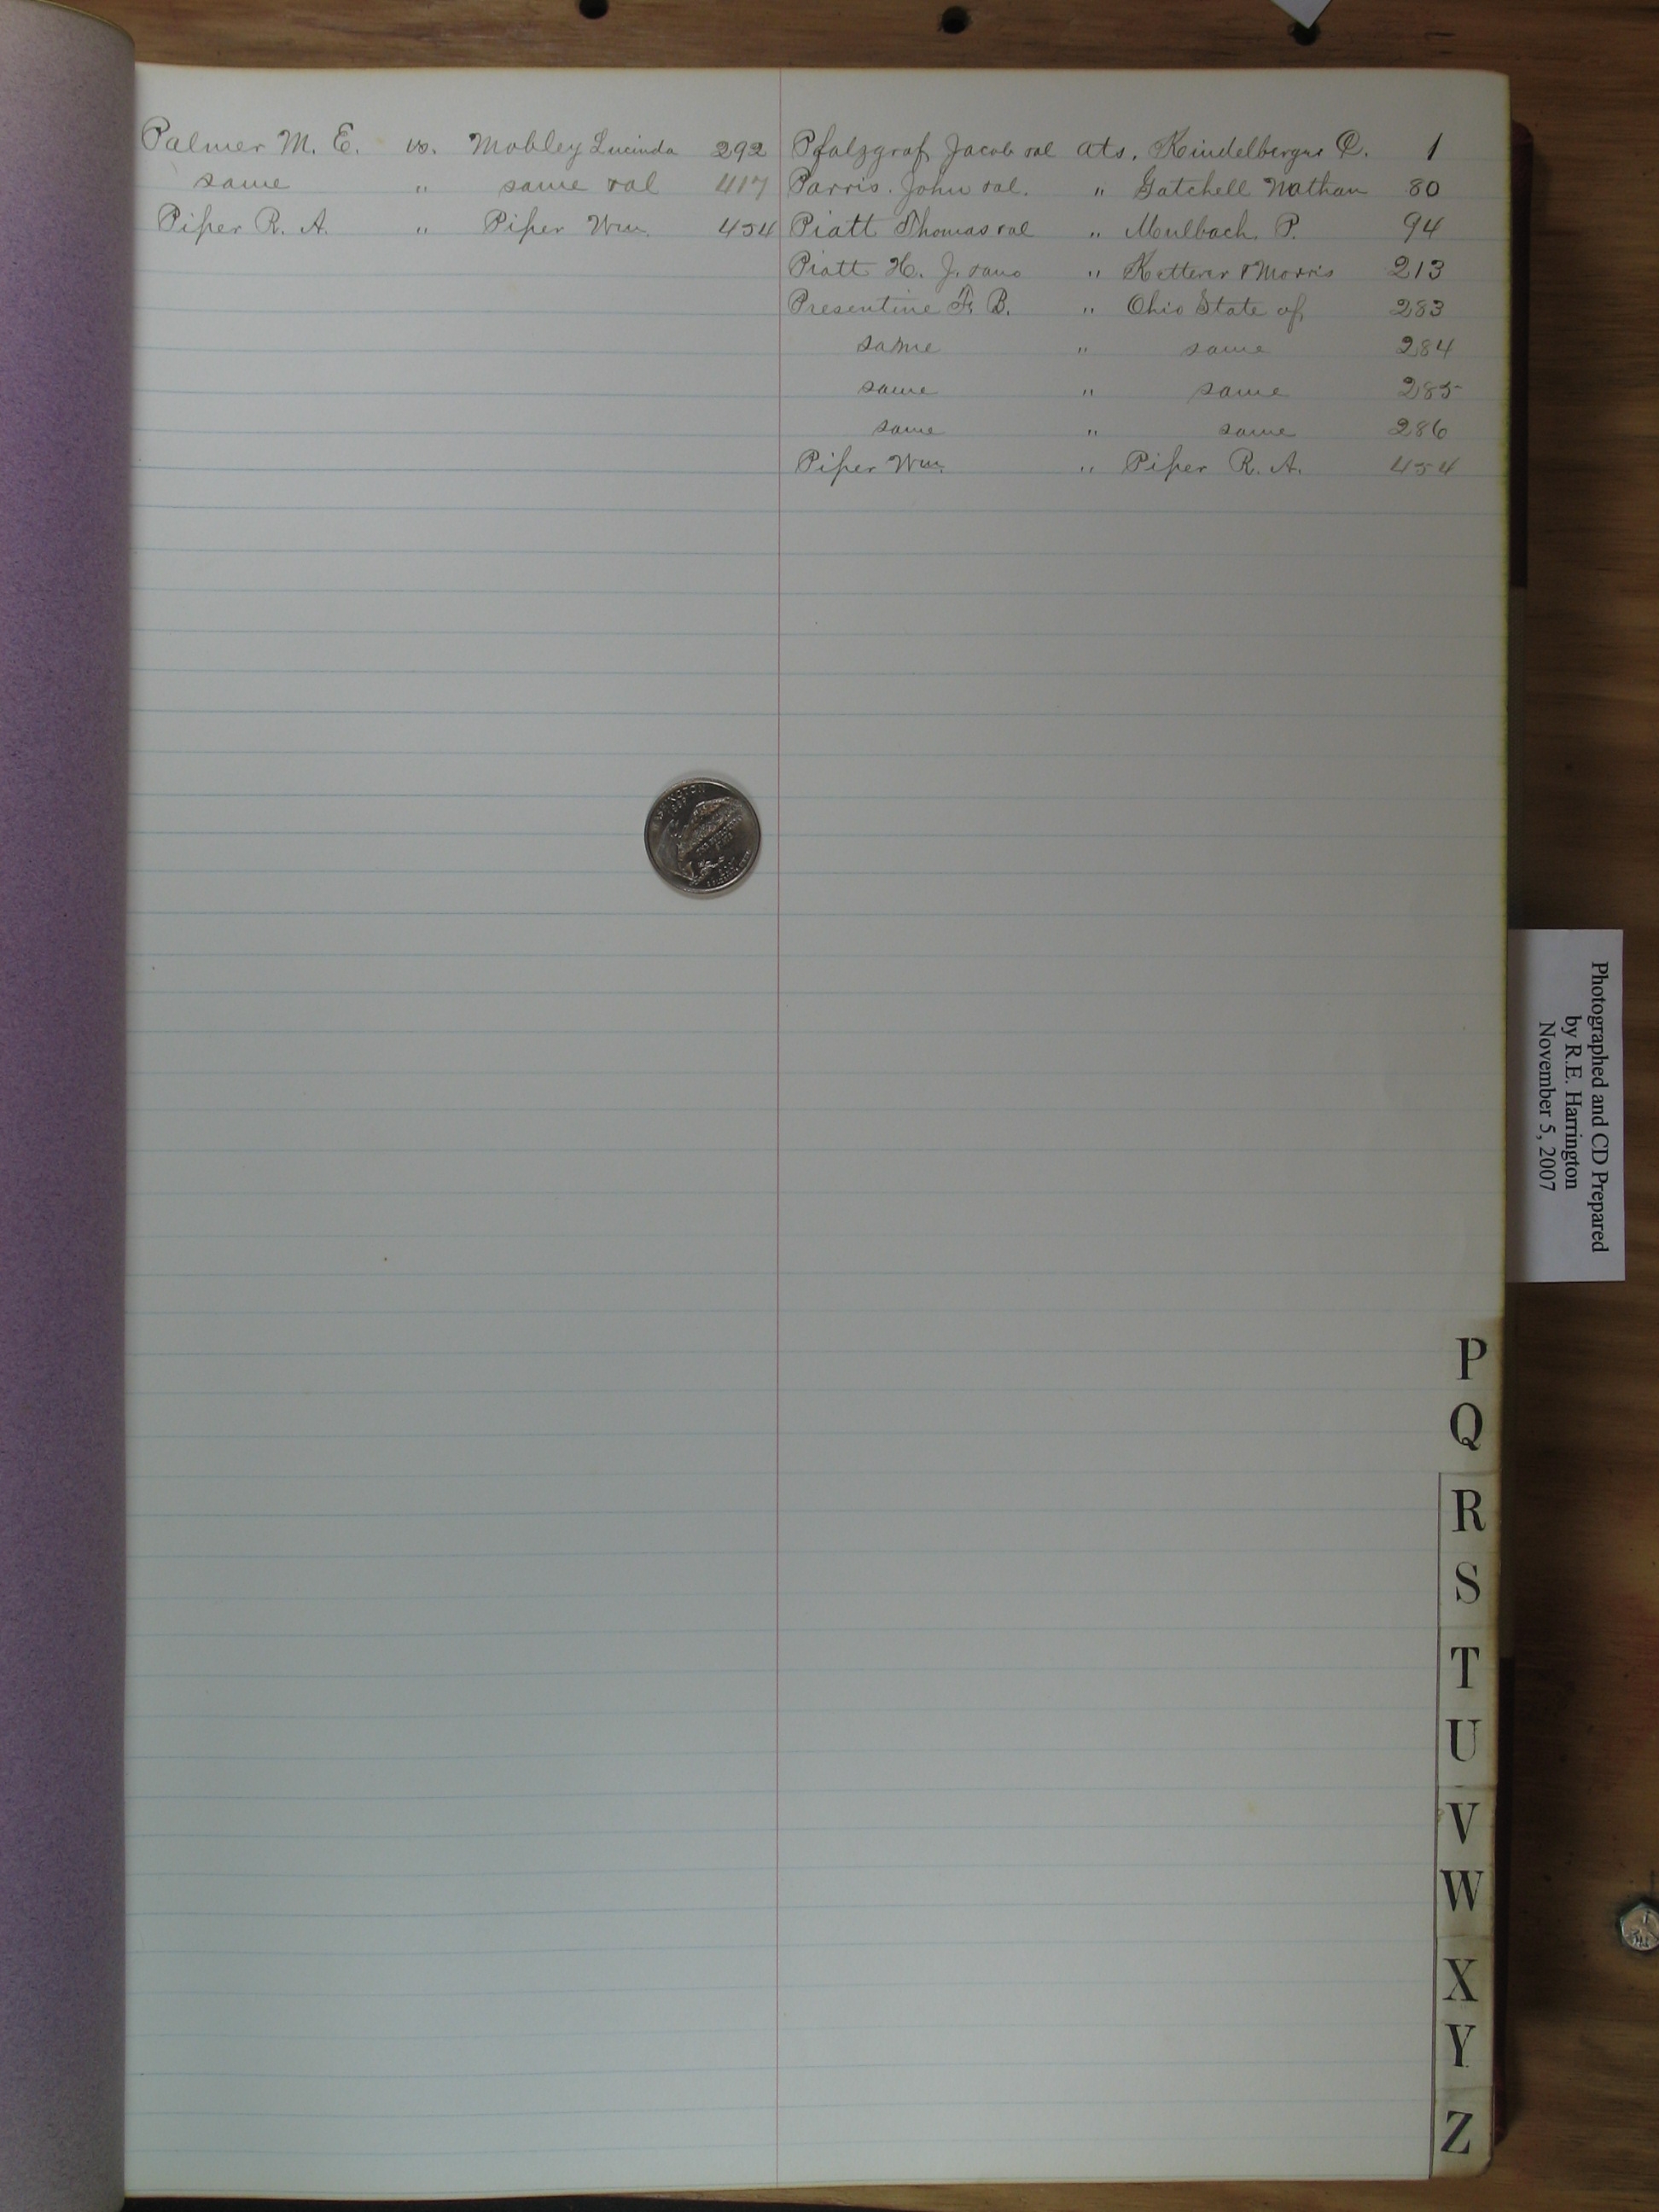 Palmer M. E. vs. Mobley Lucinda 292
same " same & al 417
Piper R. A. " Piper Wm. 454
Pfalzgraf Jacob & al ats. Kindelberger C. 1
Parris John & al. " Gatchell Nathan 80
Piatt Thomas & al " Mulbach P. 94
Piatt H. J. " Ketterer & Morris 213
Presentine F. B. " Ohio State of 283
same " same 284
same " same 285
same " same 286
Piper Wm. " Piper R. A. 454
WASHINGTON
Photographed and CD Prepared
by R.E. Harrington
November 5, 2007
P
Q
R
S
T
U
V
W
X
Y
Z